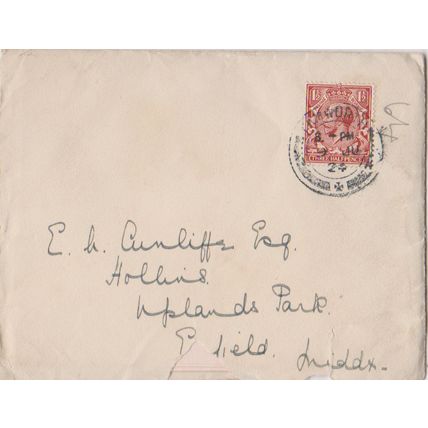 1½ 1½
THREE HALF PENCE
8 - PM
24
E. h. Cunliffe Esq.
Hollins.
Uplands Park.
E field.
Middx.